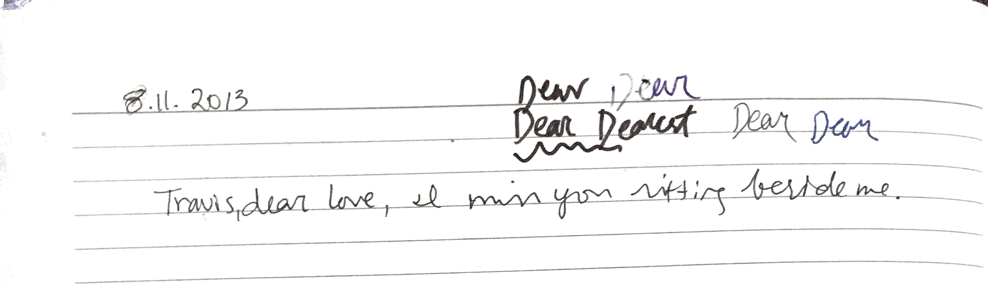 8.11.2013
Dear Dear
Dear Dearest Dear Dear
Travis, dear love, I miss you sitting beside me.